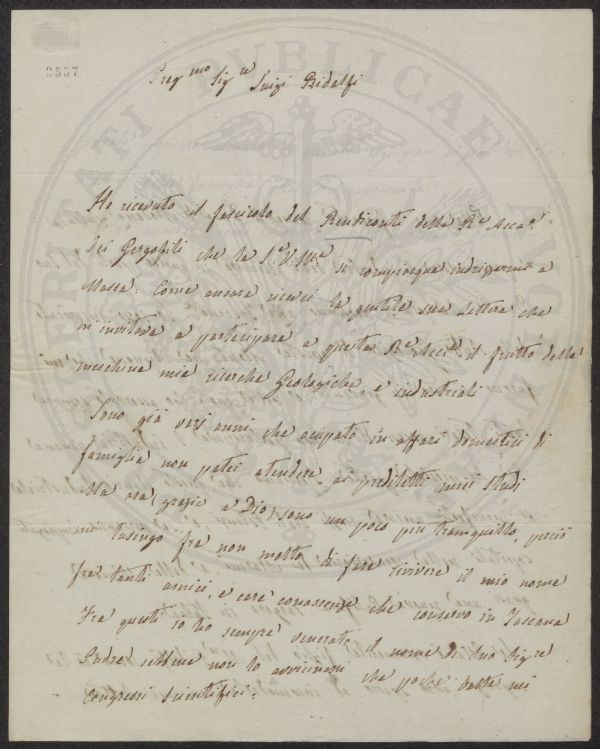 2557
Preg.mo Sig.re Luigi Ridolfi
Ho ricevuto il fascicolo del Rendiconti della R.a Acca.a
dei Gergofili che la S.a V. Ill.a si compiacque indrizzarmi a
Massa. Come ancora ricevei la gentile sua lettera che
m invitava a partecipare a questa R.a Acc.a il frutto della
meschine mie ricerche Geologiche, e industriali
Sono già vari anni che ocupato in affari domestici di
famiglia non potei atendere ai predetti miei studi
Ma ora (grazie a Dio) sono un poco più tranquillo, perciò
lusingo fra non molto di fare rivivere il mio nome
fra tanti amici, e care conoscenze che conservo in Toscana
Fra questi io ho sempre venerato il nome di Suo Sig.re
Padre sebbene non lo avvicinassi che poche volte nei
congressi Scientifici.